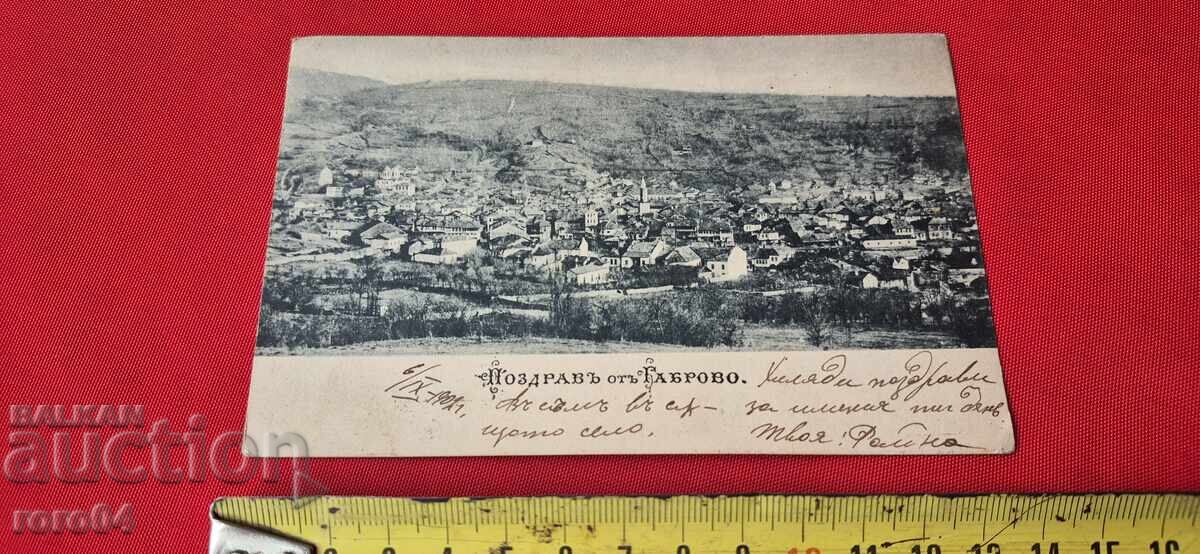 Поздравъ отъ Габрово.
6/IX-1902г.
въ
село.
Хиляди поздрави
за именния ти день
Твоя:
BALKAN
auction
roro64
2 3 4 5 6 7 8 9 10 11 12 13 14 15 16